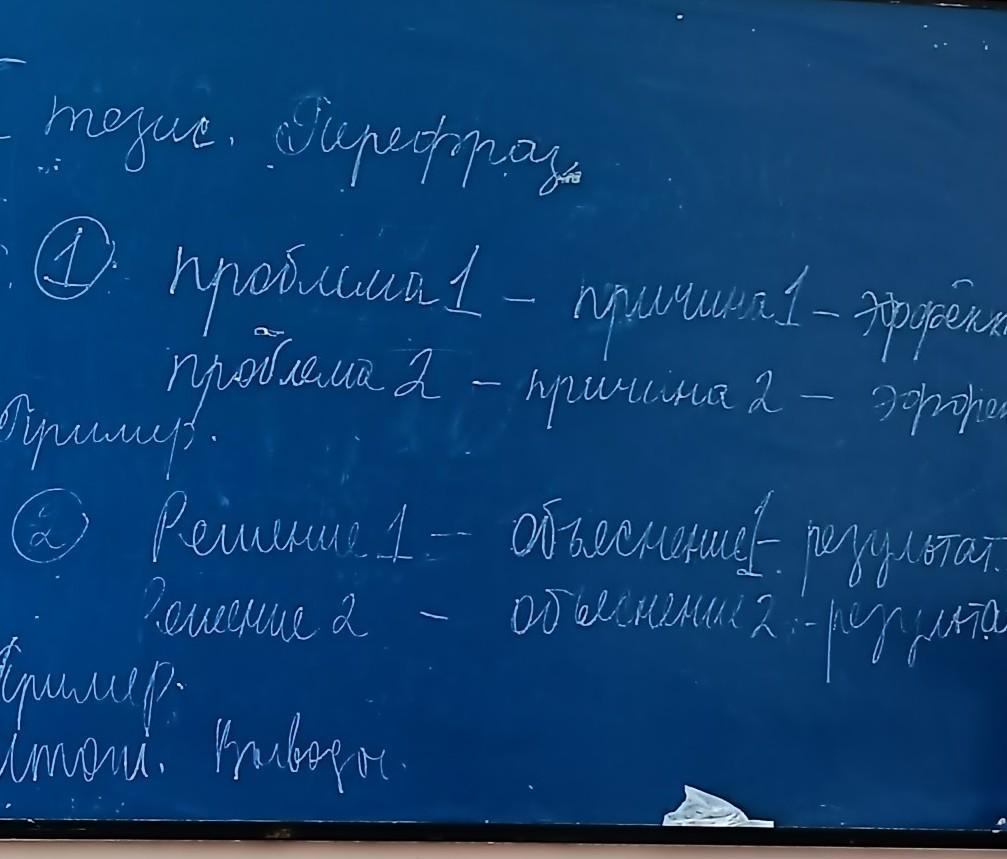 тезис. Перефраз
1 проблема 1 – причина 1 – эффект
проблема 2 – причина 2 – эффек
Пример.
2 Решение 1 – объяснение 1 - результат.
Решение 2 – объяснение 2 - результа
Пример.
Итоги. Выводы.